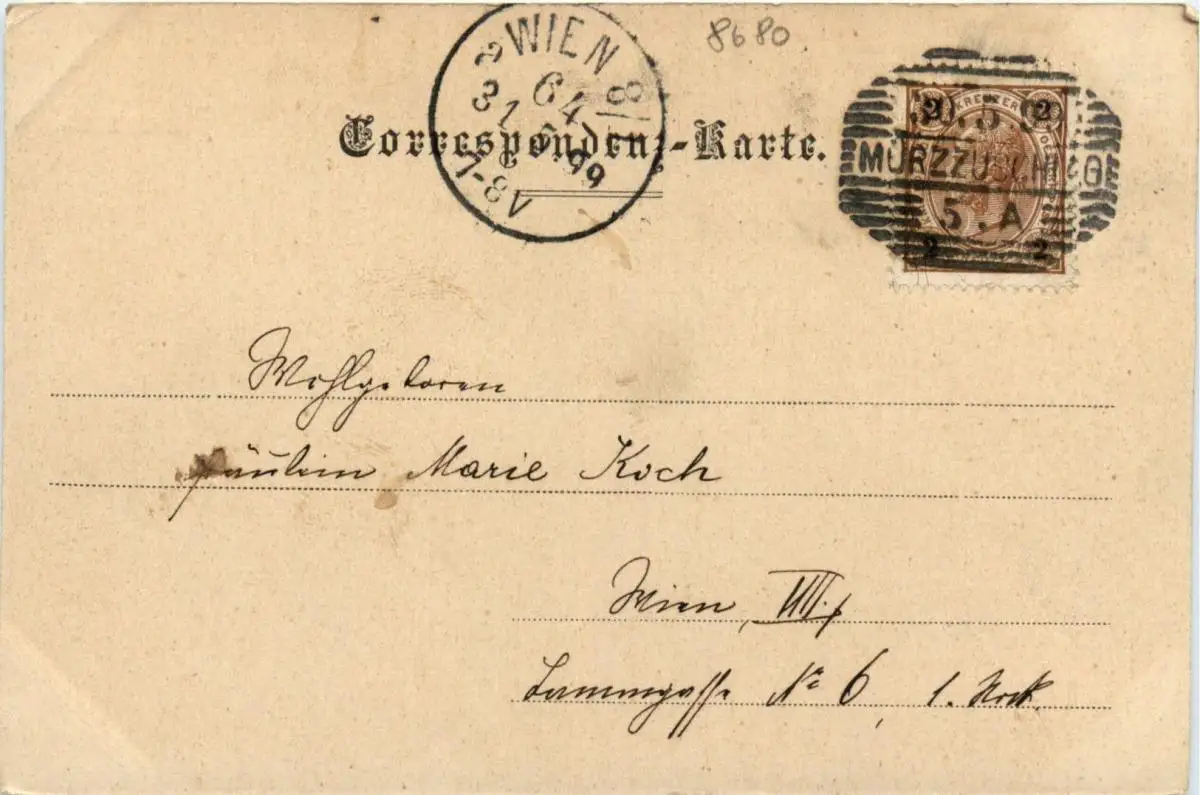 8680
WIEN 8/1
64
31 5 99
7-8V
Correspondenz-Karte.
2 KREUZER 2
30.5.9
MÜRZZUSCHLAG
5.A
2 2
Wohlgeboren
Fräulein Marie Koch
Wien, VIII/
Lammgasse No 6, 1. Stock.